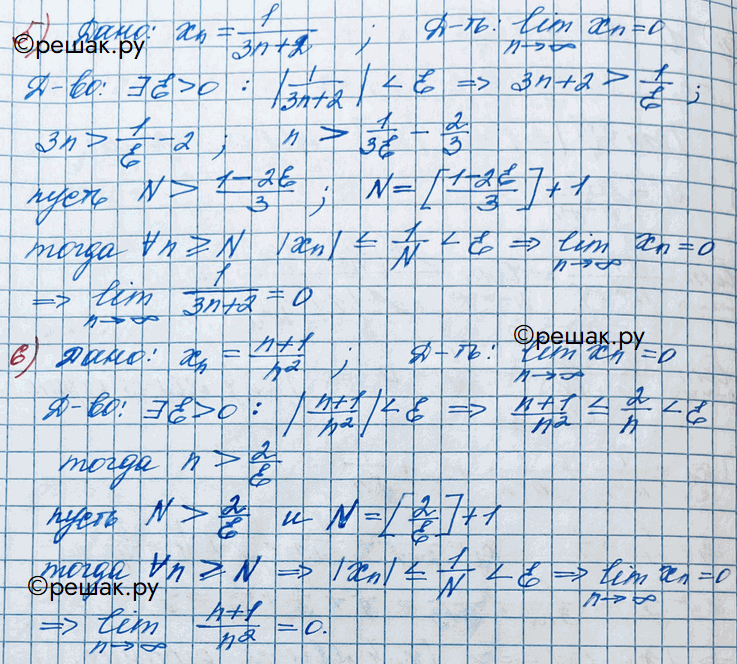 5) Дано: xₙ = 1/(3n+2) ; Д-ть: lim xₙ = 0 n→∞
©решак.ру
Д-во: ∃Ɛ>0 : |1/(3n+2)| < Ɛ ⇒ 3n+2 > 1/Ɛ ;
3n > 1/Ɛ - 2 ; n > 1/3Ɛ - 2/3
пусть N > (1-2Ɛ)/3 ; N = [(1-2Ɛ)/3] + 1
тогда ∀n ≥ N |xₙ| ≤ 1/N < Ɛ ⇒ lim xₙ = 0 n→∞
⇒ lim n→∞ 1/(3n+2) = 0
©решак.ру
6) Дано: xₙ = (n+1)/n² ; Д-ть: lim xₙ = 0 n→∞
Д-во: ∃Ɛ>0 : |(n+1)/n²| < Ɛ ⇒ (n+1)/n² ≤ 2/n < Ɛ
тогда n > 2/Ɛ
пусть N > 2/Ɛ и N = [2/Ɛ] + 1
тогда ∀n ≥ N ⇒ |xₙ| ≤ 1/N < Ɛ ⇒ lim xₙ = 0 n→∞
©решак.ру
⇒ lim n→∞ (n+1)/n² = 0.